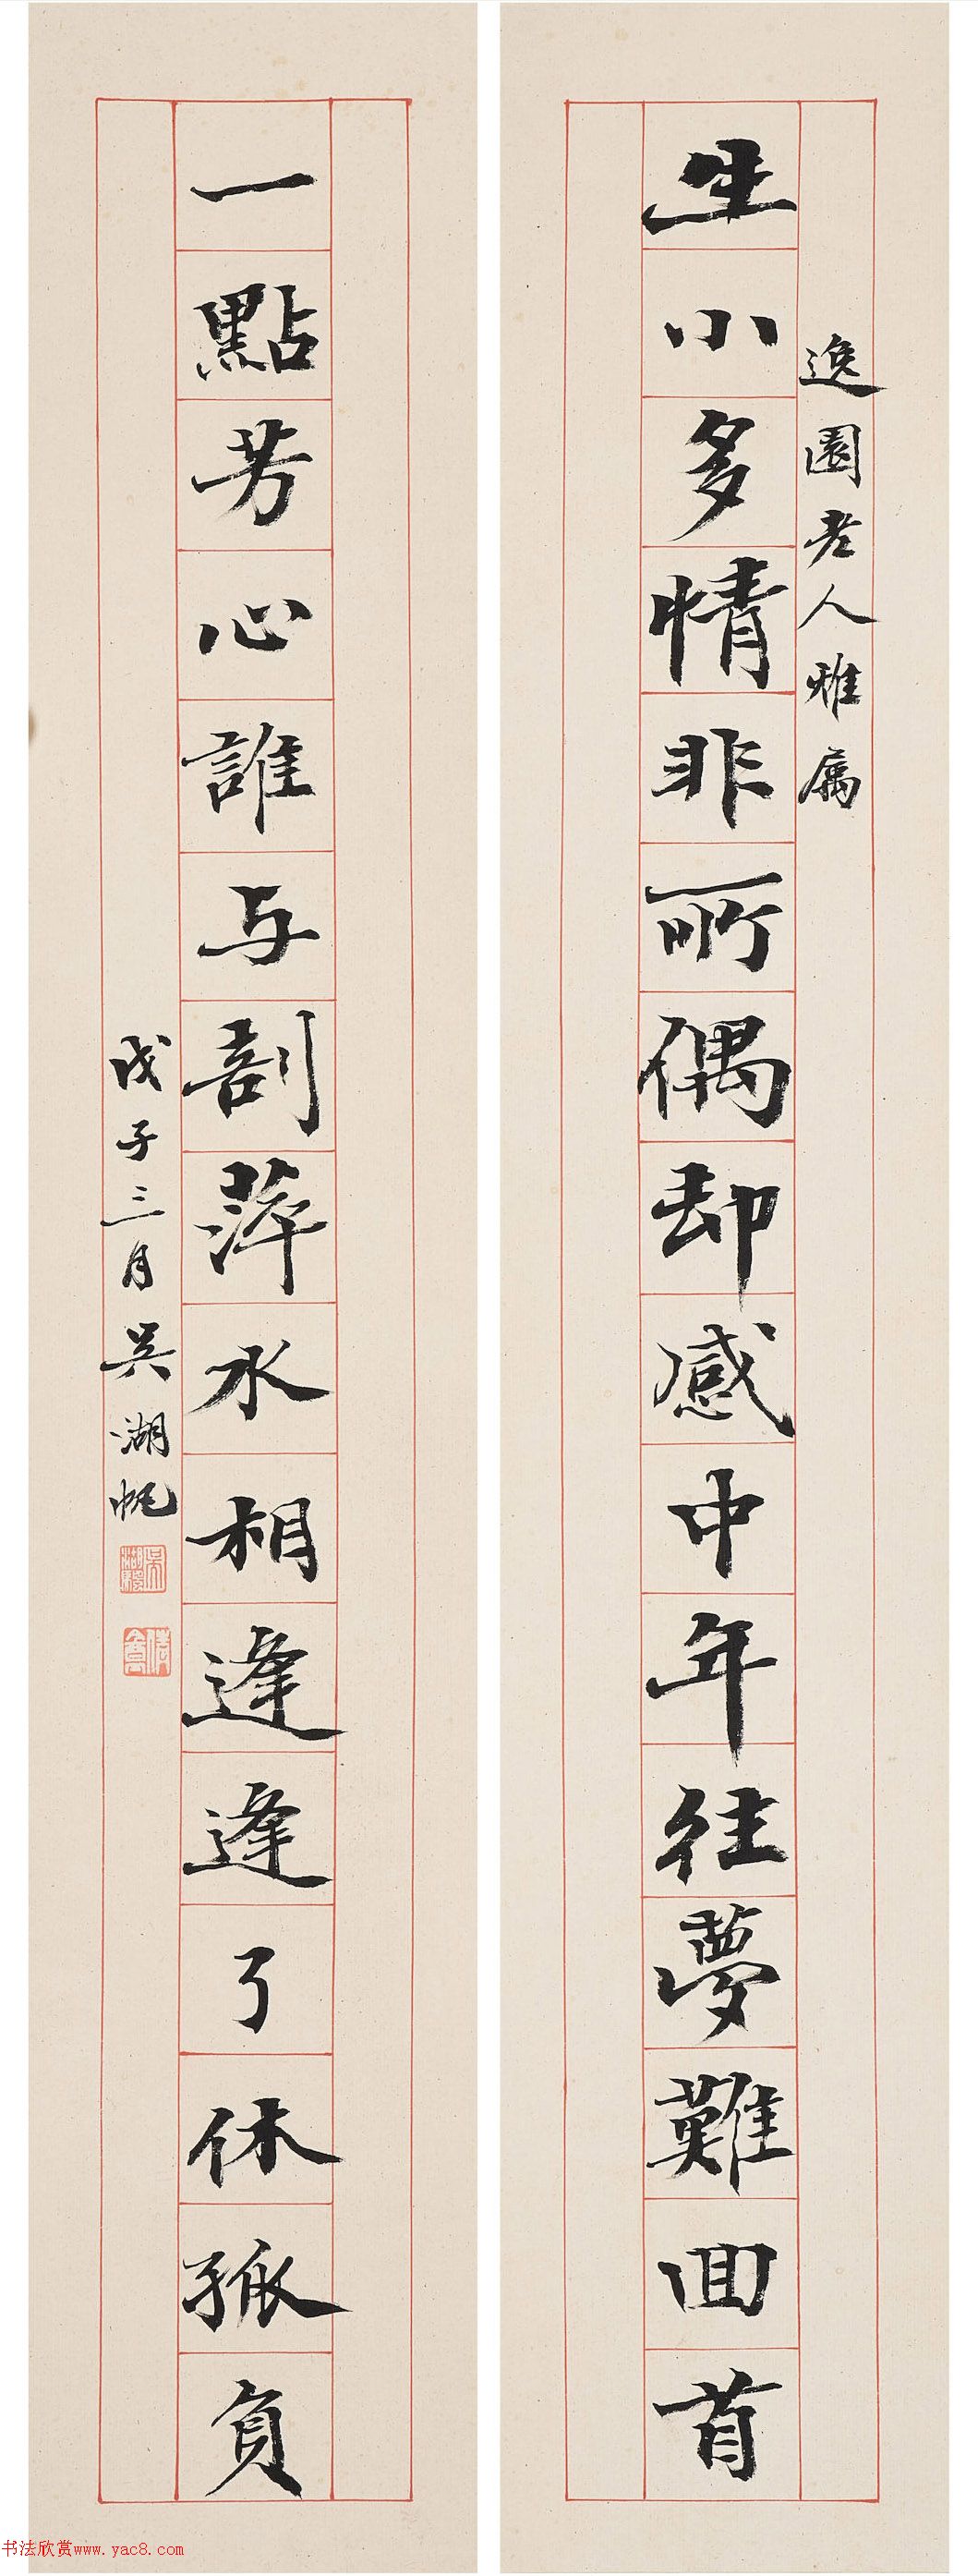 逸園老人雅属
生小多情非所偶却感中年往夢難回首
一點芳心誰与剖萍水相逢逢了休孤負
戊子三月吴湖帆
书法欣赏www.yac8.com